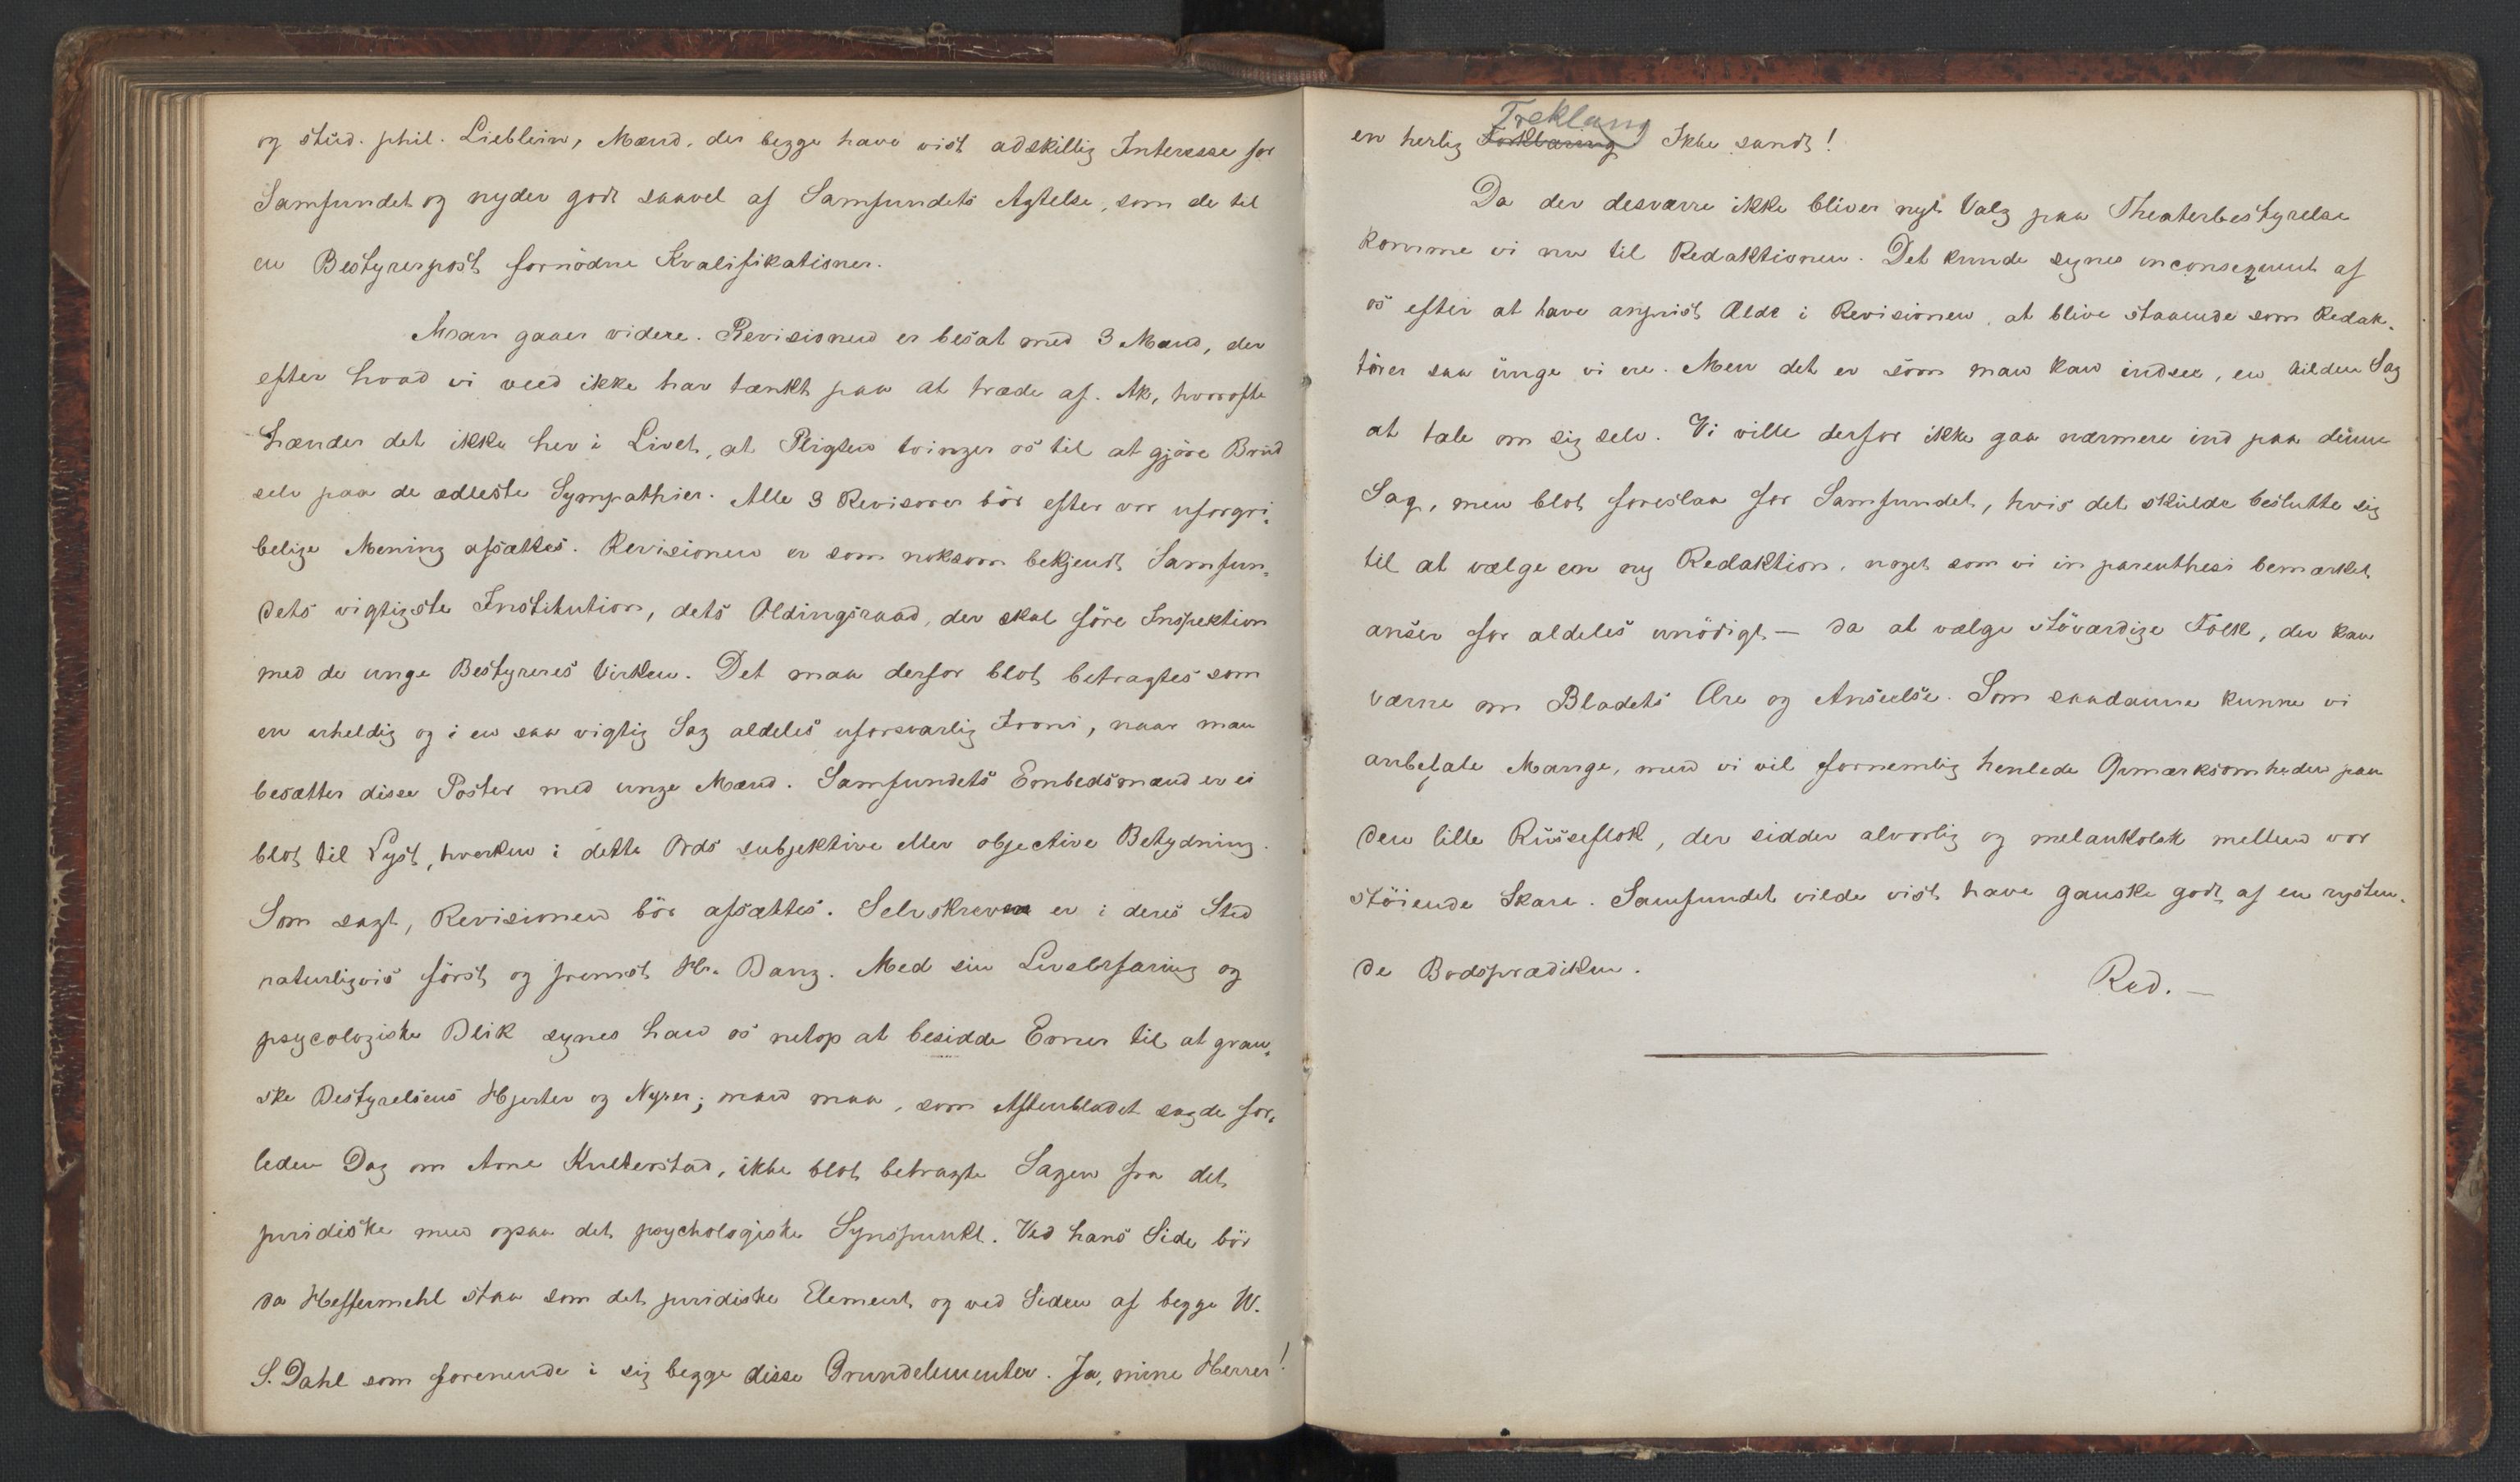 og stud. phil. Lieblein, Mænd, der begge have vist adskillig Interesse for
Samfundet og nyder godt saavel af Samfundets Agtelse, som de til
en Bestyrerpost fornödne Kvalifikationer.
Man gaaer videre. Revisionen er besat med 3 Mænd, der
efter hvad vi veed ikke har tænkt paa at træde af. Ak, hvorofte
hænder det ikke her i Livet, at Pligten tvinger os til at gjöre Brud
selv paa de ædleste Sympathier. Alle 3 Revisorer bör efter vor uforgri-
belige Mening afsættes. Revisionen er som noksom bekjendt Samfun-
dets vigtigste Institution, dets Oldingsraad, der skal före Inspektion
med de unge Bestyreres Virken. Det maa derfor blot betragtes som
en uheldig og i en saa vigtig Sag aldeles uforsvarlig Ironi, naar man
besætter disse Poster med unge Mænd. Samfundets Embedsmænd er ei
blot til Lyst, hverken i dette Ords subjektive eller objective Betydning.
Som sagt, Revisionen bör afsættes. Selvskreven er i deres Sted
naturligvis först og fremst Hr. Bang. Med sin Livserfaring og
psycologiske Blik synes han os netop at besidde Evner til at gran-
ske Bestyrelsens Hjerter og Nyrer; man maa, som Aftenbladet sagde for-
leden Dag om Arne Kulterstad, ikke blot betragte Sagen fra det
juridiske men ogsaa det psychologiske Synspunkt. Ved hans Side bör
da Heffermehl staa som det juridiske Element og ved Siden af begge W.
S. Dahl som forenende i sig begge disse Grundelementer. Ja, mine Herrer!
en herlig Forklaring Treklang! Ikke sandt!
Da der desværre ikke bliver nyt Valg paa Theaterbestyrelse
komme vi nu til Redaktionen. Det kunde synes inconseqvent af
os efter at have anpriist Ælde i Revisionen, at blive staaende som Redak-
törer saa unge vi ere. Men det er som man kan indsee, en kilden Sag
at tale om sig selv. Vi ville derfor ikke gaa nærmere ind paa denne
Sag, men blot foreslaa for Samfundet, hvis det skulde beslutte sig
til at vælge en ny Redaktion, noget som vi in parenthesi bemærket
anser for aldeles unödigt — da at vælge stöværdige Folk, der kan
værne om Bladets Ære og Anseelse. Som saadanne kunne vi
anbefale Mange, men vi vil fornemlig henlede Opmærksomheden paa
den lille Russeflok, der sidder alvorlig og melankolsk mellem vor
stöiende Skare. Samfundet vilde vist have ganske godt af en rysten-
de Bodsprædiken.
Red. —